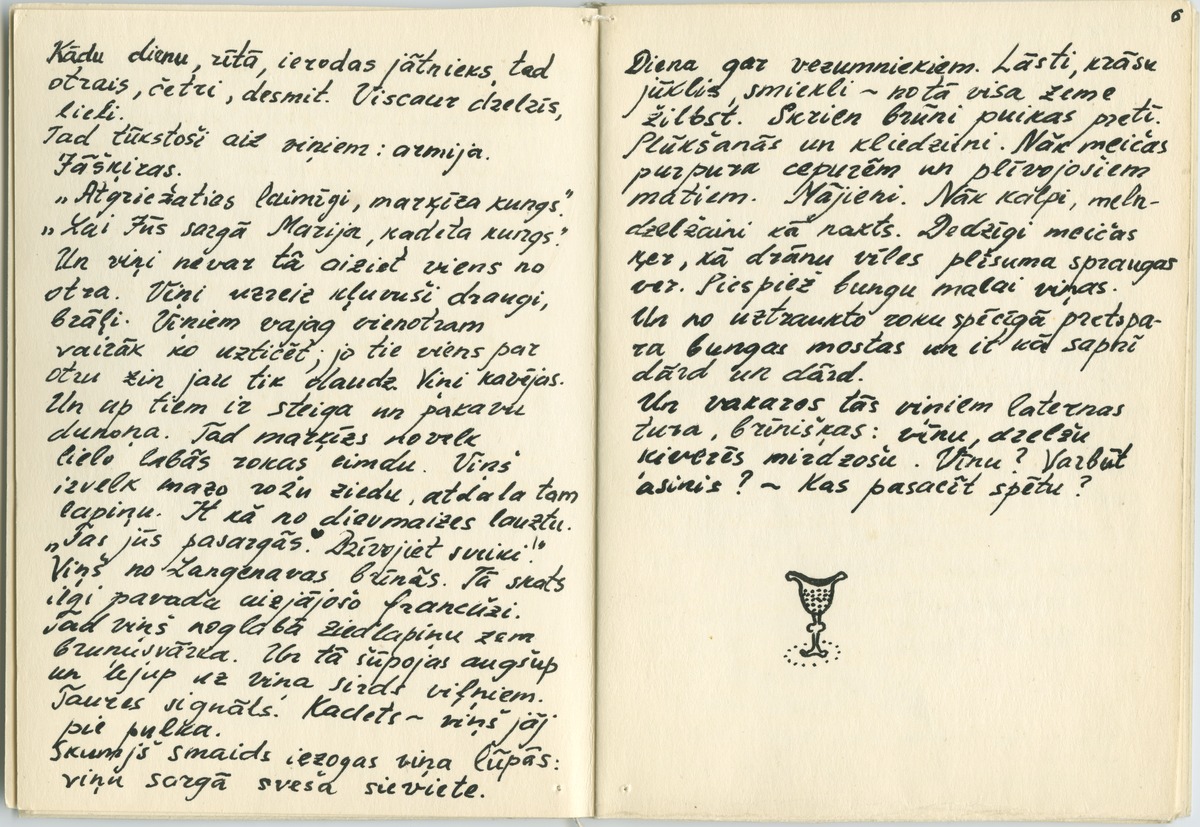 Kādu dienu, rītā, ierodas jātnieks, tad
otrais, četri, desmit. Viscaur dzelzīs,
lieli.
Tad tūkstoši aiz viņiem: armija.
Jāšķiras.
„Atgriežaties laimīgi, marķīza kungs."
„Lai Jūs sargā Marija, kadeta kungs."
Un viņi nevar tā aiziet viens no
otra. Viņi uzreiz kļuvuši draugi,
brāļi. Viņiem vajag vienotram
vairāk ko uzticēt; jo tie viens par
otru zin jau tik daudz. Viņi kavējas.
Un ap tiem ir steiga un pakavu
dunoņa. Tad marķīzs novelk
lielo labās rokas cimdu. Viņš
izvelk mazo rožu ziedu, atdala tam
lapiņu. It kā no dievmaizes lauztu.
„Tas jūs pasargās. Dzīvojiet sveiki!"
Viņš no Langenavas brīnās. Tā skats
ilgi pavada aizjājošo francūzi.
Tad viņš noglabā ziedlapiņu zem
bruņusvārka. Un tā šūpojas augšup
un lejup uz viņa sirds viļņiem.
Taures signāls. Kadets ~ viņš jāj
pie pulka.
Skumjš smaids iezogas viņa lūpās:
viņu sargā sveša sieviete.
6
Diena gar vezumniekiem. Lāsti, krāsu
jūklis, smiekli ~ no tā visa zeme
žilbst. Skrien brūni puikas pretī.
Plūkšanās un kliedzieni. Nāk meičas
purpura cepurēm un plīvojošiem
matiem. Mājieni. Nāk kalpi, meln-
dzelžaini kā nakts. Dedzīgi meičas
ķer, kā drānu vīles plīsuma spraugas
ver. Piespiež bungu malai viņas.
Un no uztraukto roku spēcīgā pretspa-
ra bungas mostas un it kā sapnī
dārd un dārd.
Un vakaros tās viņiem laternas
tura, brīnišķas: vīnu, dzelžu
ķiverēs mirdzošu. Vīnu? Varbūt
asinis? ~ Kas pasacīt spētu?